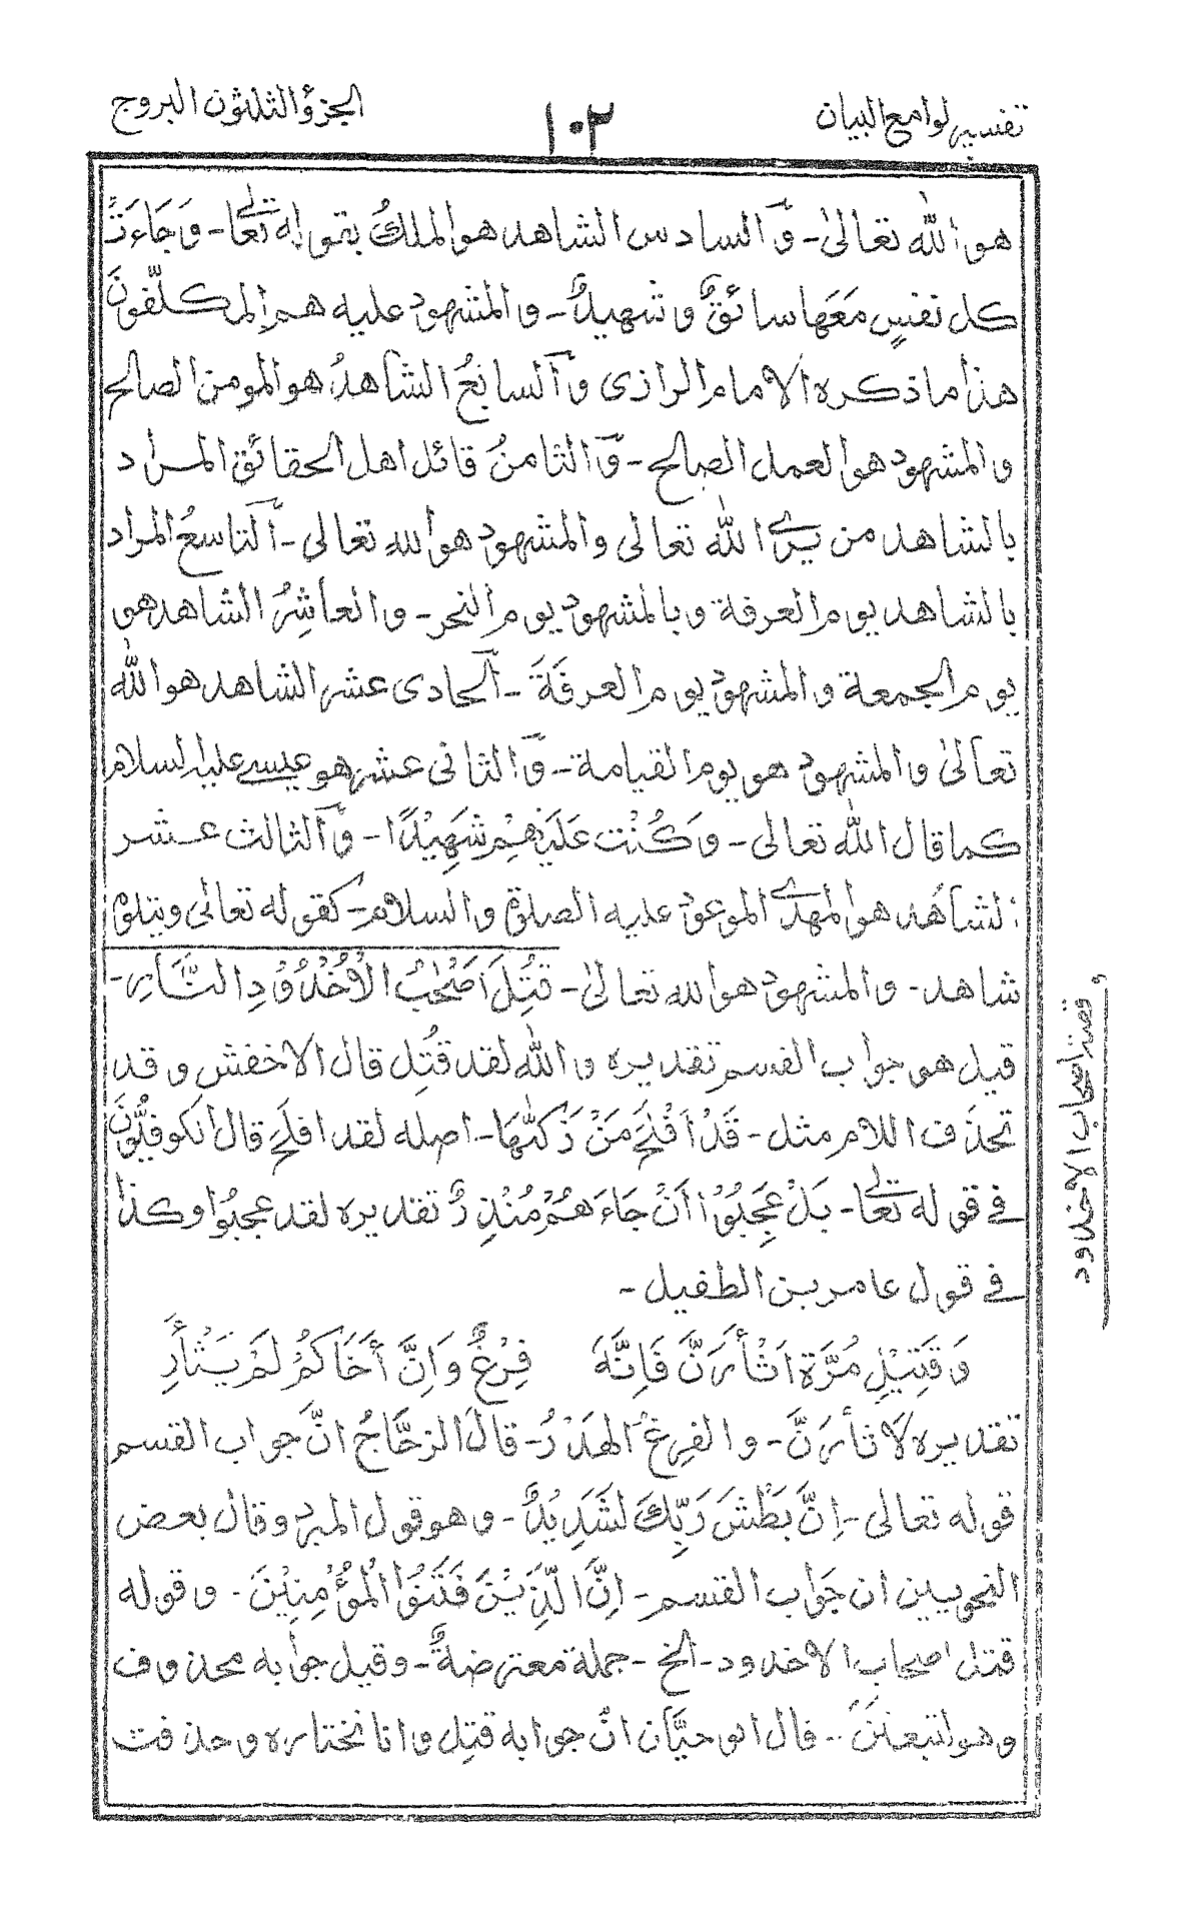 تفسير لوامع البيان
١٠٢
الجزؤ الثلثون البروج
هو الله تعالىٰ - وٓالسادس الشاهد هو الملكُ بقوله تعالى - وَجَاءَتْ
كل نفسٍ مَعَها سائقٌ وشهيدٌ - والمشهود عليه هم المكلّفونَ
هذا ما ذكره الامام الرازى وٓالسابعُ الشاهدُ هو المومن الصالح
والمشهود هو العمل الصالح - وٓالثامنُ قائل اهل الحقائق المراد
بالشاهد من يرى الله تعالى والمشهود هو الله تعالى - آلتاسعُ المراد
بالشاهد يوم العرفة وبالمشهود يوم النحر - والعاشِرُ الشاهد هو
يوم الجمعة والمشهود يوم العرفَةَ - آلحادى عشر الشاهد هو الله
تعالىٰ والمشهود هو يوم القيامة - وٓالثانى عشر هو عيسى عليه السلام
كما قال الله تعالى - وَكُنْت عَلَيْهِمْ شَهِيْدًا - وٓالثالث عشر
الشاهَد هو المهدى الموعود عليه الصلوة والسلام - كقوله تعالىٰ ويتلوه
شاهد - والمشهود هو الله تعالىٰ - قُتِلَ اَصْحٰبُ الْاُخْدُوْدِ النَّارِ -
قيل هو جواب القسم تقديره والله لقد قُتِل قال الاخفش وقد
تحذف اللام مثل - قَدْ اَفْلَحَ مَنْ زَكّٰهَا - اصله لقد افلَحَ قال الكوفيُّونَ
فى قوله تعالى - بَلْ عَجِبُوْا اَنْ جَاءَهُمْ مُنْذِرٌ تقديره لقد عجبُوا وكذا
فى قول عامر بن الطفيل -
وَقَتِيْلِ مُرَّةَ اَثْأَرَنَّ فَاِنَّهُ     فِرْغٌ وَاِنَّ أَخَاكُمْ لَمْ يَثْأَرِ
تقديره لَاَثأرَنَّ - والفِرغُ الهَدْرُ - قالَ الزجَّاجُ انَّ جواب القسم
قوله تعالى - اِنَّ بَطْشَ رَبِّكَ لَشَدِيْدٌ - وهو قول المبرد وقال بعض
النحويين ان جَوَاب القسم - اِنَّ الَّذِيْنَ فَتَنُوا الْمُؤْمِنِيْنَ - وقوله
قتل اصحاب الاخدود - الخ - جملة معترضةٌ - وقيل جوابه محذوف
وهو لتبعثنَّ - قال ابو حيَّان انَّ جوابه قتِل وانا نختاره وحذفت
و قصة اصحاب الاخدود